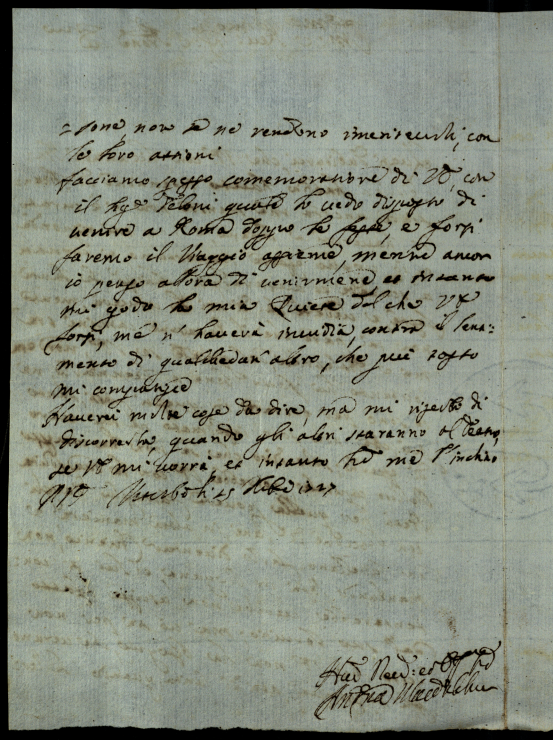 =sone, non se ne rendono imeriteuoli, con
le loro attioni
facciamo spesso comemoratione di VS, con
il Sigr Feloni quale lo uedo disposto di
uenire a Roma doppo le feste, e forsi
faremo il Viaggio assieme, mentre ancor
io penso allora di uenirmene et intanto
mi godo la mia Quiete del che VS
forsi, me n' hauerà inuidia, contro il senti=
mento di qualchedun' altro, che più tosto
mi compiange
Hauerei molte cose da dire, ma mi riserbo di
discorrerle, quando gli altri staranno al Teatro,
se VS mi uorrà, et intanto me l'inchino
Viterbo li 25 1727
Andrea